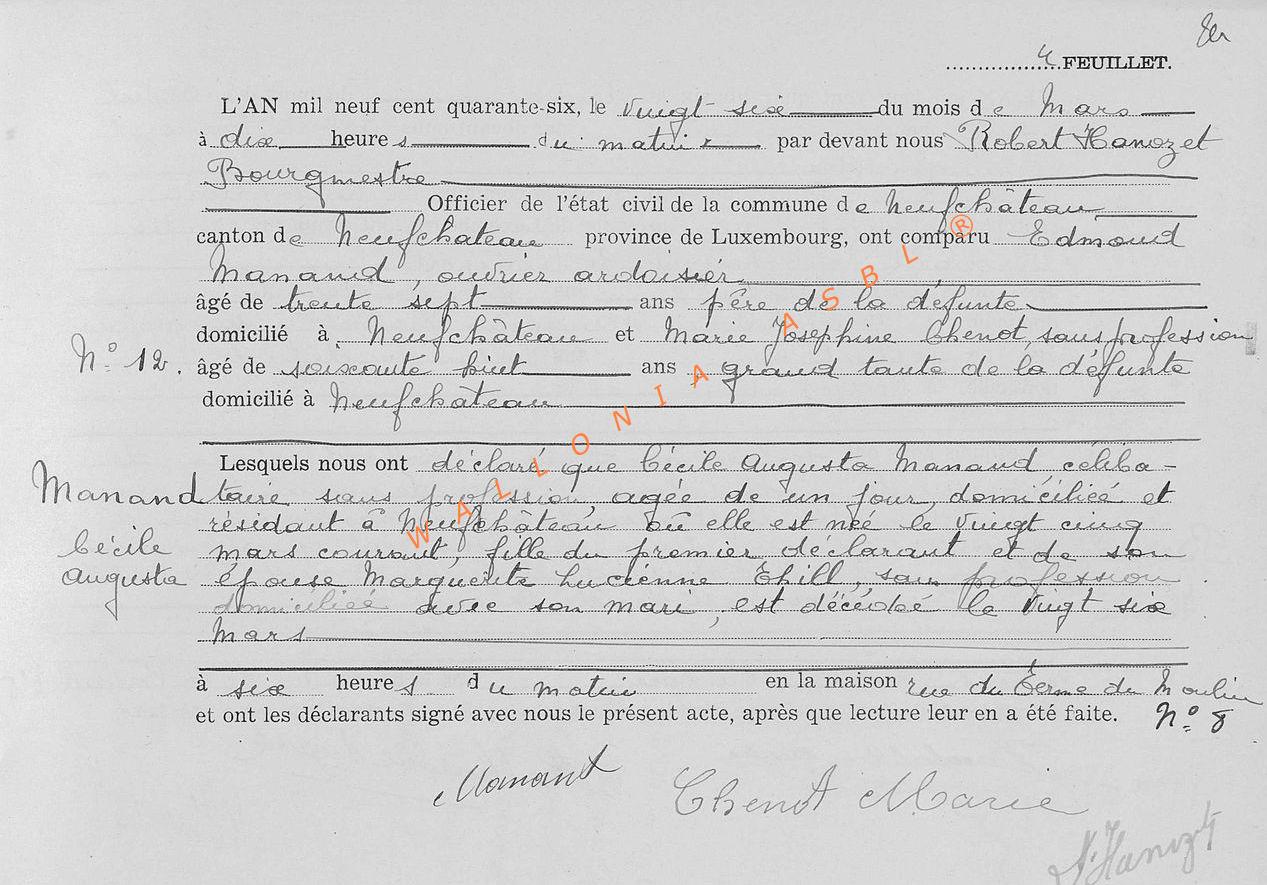 4 FEUILLET.
L'AN mil neuf cent quarante-six, le vingt six du mois de Mars
à dix heures du matin par devant nous Robert Hanozet
Bourgmestre
Officier de l'état civil de la commune de Neufchâteau
canton de Neufchateau province de Luxembourg, ont comparu Edmond
Manand, ouvrier ardoisier
âgé de trente sept ans père de la défunte
domicilié à Neufchâteau et Marie Josephine Chenot, sans profession
N° 12. âgé de soixante huit ans grand tante de la défunte
domicilié à Neufchâteau
Lesquels nous ont déclaré que Cécile Augusta Manand céliba-
Manand taire sans profession, agée de un jour, domiciliée et
résidant à Neufchâteau où elle est née le vingt cinq
Cécile mars courant, fille du premier déclarant et de son
Augusta épouse Marguerite Lucienne Thill, sans profession
domiciliée avec son mari, est décédée le vingt six
Mars
à six heures du matin en la maison rue du Terme du Moulin
et ont les déclarants signé avec nous le présent acte, après que lecture leur en a été faite. N° 8
Manant
Chenot Marie
Hanozet
WALLONIA ASBL ®